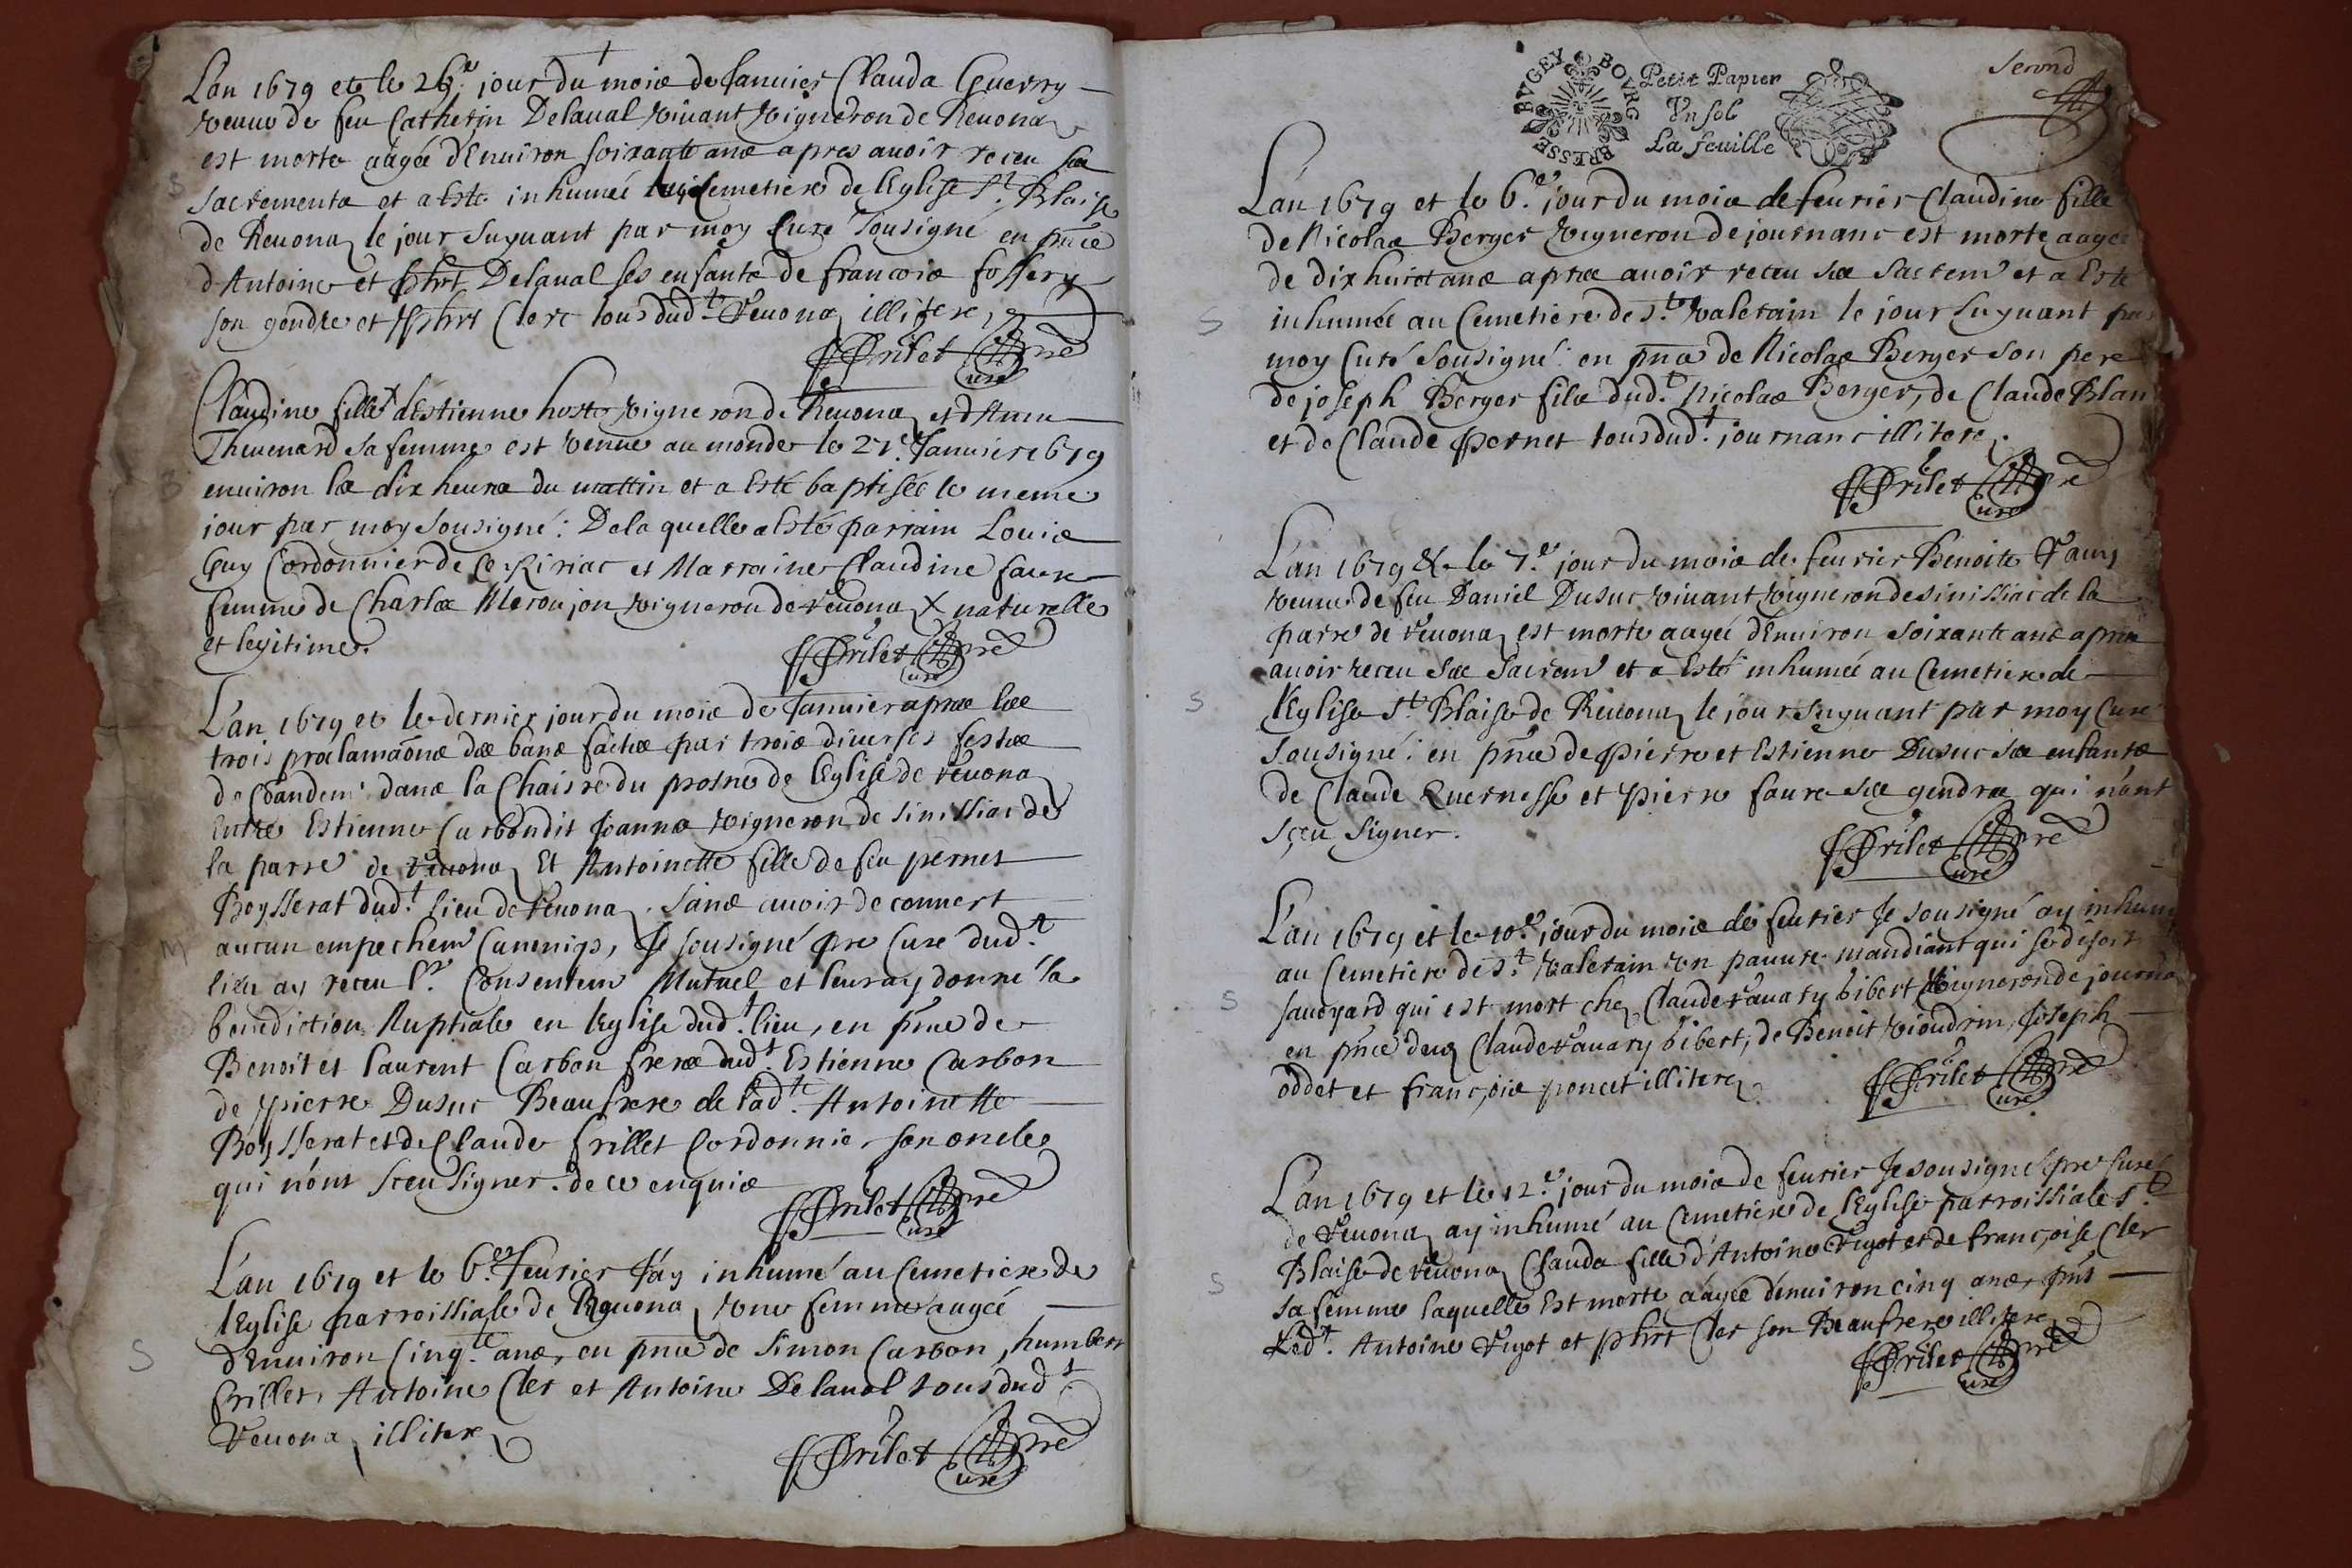 L'an 1679 et le 26e. jour du mois de Januier Clauda Guerry
veuue de feu Catherin Delaual viuant vigneron de Reuonaz
est morte aagée d'Enuiron soixante ans apres auoir receu ses
S
sacrements et a esté inhumée Cemetiere de l'Eglise St. Blaise
de Reuonaz le jour suyuant par moy Curé sousigné en pnce
d'Antoine et phrt Delaual ses enfants de francois fossery
son gendre et phrt Clerc tous dudt. Reuonaz illiterez
Frilet pre
Curé
Claudine fille x d'Estienne hoste vigneron de Reuonaz et d'Anne
Theuenard sa femme est venue au monde le 27e. Januier 1679
B
enuiron les dix heures du mattin et a Esté baptisée le meme
jour par moy sousigné: De laquelle a Esté parrain Louis
Guy Cordonnier de Ceyziriac et Marraine Claudine faure
femme de Charles Meroujon vigneron de reuonaz x naturelle
et legitime.
Frilet pre
Curé
L'an 1679 et le dernier jour du mois de Januier apres les
trois proclamaõns des bans faites par trois diuerses festes
de Commandemt dans la Chaisre du prosne de l'Eglise de reuonaz
Entre Estienne Carbon dit Joanna vigneron de Sinissiac de
la parre de reuonaz Et Antoinette fille de feu pernet
Boysserat dudt. lieu de reuonaz. Sans auoir decouuert
M
aucun empechemt Canonicq, Je sousigné pre Curé dudt.
lieu ay receu lr. Consentemt Mutuel et leur ay donné la
benediction Nuptiale en l'Eglise dudt. lieu, en pnce de
Benoit et laurent Carbon freres dudt. Estienne Carbon
de pierre Dusuc Beaufrere de ladte. Antoinette
Boysserat et de Claude frillet Cordonnier son oncle
qui n'ont sceu signer. de ce enquis
Frilet pre
Curé
L'an 1679 et le 6e. feurier J'ay inhumé au Cemetiere de
l'Eglise parroissiale de Reuonaz vne femme aagée
S
d'Enuiron Cinqte. ans, en pnce de Simon Carbon, humbert
frillet, Antoine Cler et Antoine Delaual tous dudt.
reuonaz illiterez
Frilet pre
Curé
BVGEY BOVRG BRESSE
Petit Papier
Vn sol
La feuille
Second
L'an 1679 et le 6e. jour du mois de feurier Claudine fille
de Nicolas Berger vigneron de journanc est morte aagée
de dix huict ans apres auoir receu ses sacremt et a Esté
S
inhumée au Cemetiere de St. valerain le jour suyuant par
moy Curé sousigné: en pnce de Nicolas Berger son pere
de joseph Berger fils dudt. Nicolas Berger, de Claude Blan
et de Claude pernet tous dudt. journanc illiterez.
Frilet pre
Curé
L'an 1679 & le 7e. jour du mois de feurier Benoite
veuue de feu Daniel Dusuc viuant vigneron de sinissiac de la
parre de reuonaz est morte aagée d'Enuiron soixante ans apres
auoir receu ses sacremt et a Esté inhumée au Cemetiere de
S
l'Eglise St. Blaise de Reuonaz le jour suyuant par moy Curé
sousigné: en pnce de pierre et Estienne Dusuc ses enfants
de Claude Quernesse et pierre faure ses gendres qui n'ont
sçeu signer.
Frilet pre
Curé
L'an 1679 et le 10e. jour du mois de feurier Je sousigné ay inhumé
au Cemetiere de St. valerain vn pauure mandiant qui se disoit
S
sauoyard qui est mort chez Claude rauary bibert vigneron de journa
en pnce dud Claude rauary bibert, de Benoit vioudrin, Joseph
oddet et françois poncet illiterez
Frilet pre
Curé
L'an 1679 et le 12e. jour du mois de feurier Je sousigné pre Curé
de reuonaz ay inhumé au Cemetiere de l'Eglise parroissiale St.
S
Blaise de reuonaz Clauda fille d'Antoine vugot et de françoise Cler
sa femme laquelle Est morte aagée d'enuiron cinq ans, pnts
Ledt. Antoine vugot et phrt Cler son Beaufrere illiterez
Frilet pre
Curé